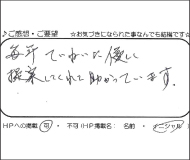 ♪ご感想・ご要望 ☆お気づきになられた事なんでも結構です☆
毎年ていねいに優しく
提案してくれて助かっています。
HPへの掲載 可 ・ 不可(HP掲載名: 名前 ・ イニシャル